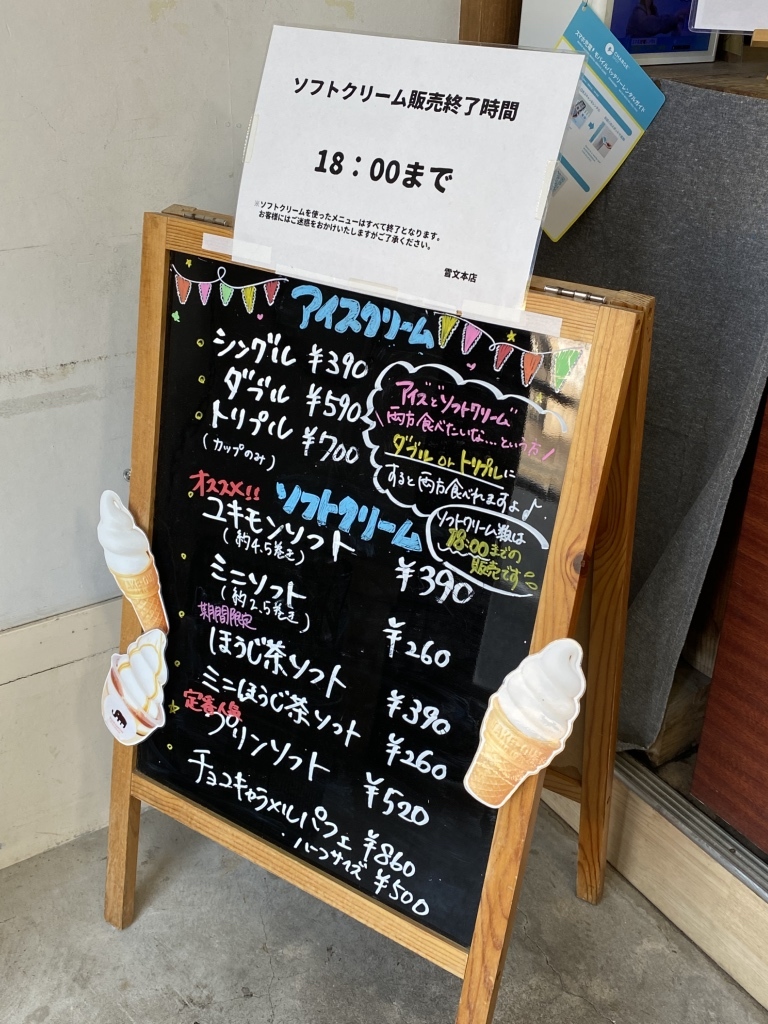 ソフトクリーム販売終了時間
18：00まで
※ソフトクリームを使ったメニューはすべて終了となります。
お客様にはご迷惑をおかけいたしますがご了承ください。
雪文本店
スマホ充電！モバイルバッテリーレンタルガイド
アイスクリーム
シングル ¥390
ダブル ¥590
トリプル ¥700
(カップのみ)
アイスとソフトクリーム
両方食べたいな…という方
ダブル or トリプルに
すると両方食べれますよ♪
ソフトクリーム数は
18:00までの
販売です
オススメ!! ソフトクリーム
ユキモンソフト ¥390
(約4.5巻き)
ミニソフト ¥260
(約2.5巻き)
期間限定
ほうじ茶ソフト ¥390
ミニほうじ茶ソフト ¥260
定番人気
プリンソフト ¥520
チョコキャラメルパフェ ¥860
・ハーフサイズ ¥500